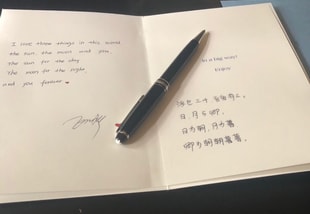 I love three things in this world.
The sun, the moon and you.
The sun for the day
The moon for the night.
and you forever
in a big way!
浮世三千 吾爱有三。
日 月 与 卿。
日为朝，月为暮。
卿为朝朝暮暮。